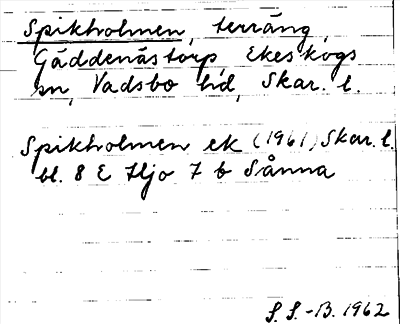 Spikholmen, terräng,
Gäddenästorp Ekeskogs
sn, Vadsbo hd, Skar. l.
Spikholmen ek (1961) Skar. l.
bl. 8 E Hjo 7 b Sånna
S. S.-B. 1962